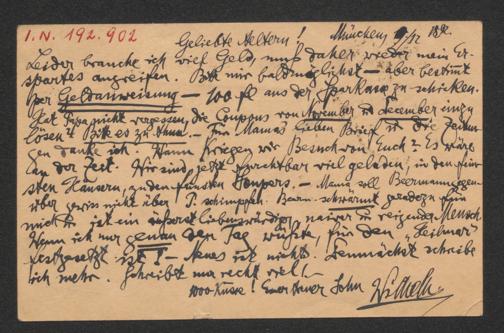 I.N. 192.902
Geliebte Aeltern! München 9/12 1892.
Leider brauche ich viel Geld, muß daher wieder mein Er-
spartes angreifen. Bitte mir baldmöglichst – aber bestimt
per Geldanweisung – 100 fl aus der Sparkasse zu schicken.
Hat Papa nicht vergessen, die Coupons von November u December einzu
lösen? Bitte es zu thun. – Für Mamas lieben Brief u die Zeitun
gen danke ich. Wann kriegen wir Besuch von Euch? Es wäre
an der Zeit. Wir sind jetzt furchtbar viel geladen, in den fein
sten Häusern, zu den feinsten Soupers. – Mama soll Beermann gegen
über gewiss nicht über P. schimpfen. Beer. schwärmt geradezu für
mich u ist ein äußerst liebenswürdiger, naiver u reizender Mensch.
Wenn ich nur genau den Tag wüsste, für den
festgesetzt ist! – Neues ist nicht. Demnächst schreibe
ich mehr. Schreibt nur recht viel! –
1000 Küsse! Euer treuer Sohn Wilhelm